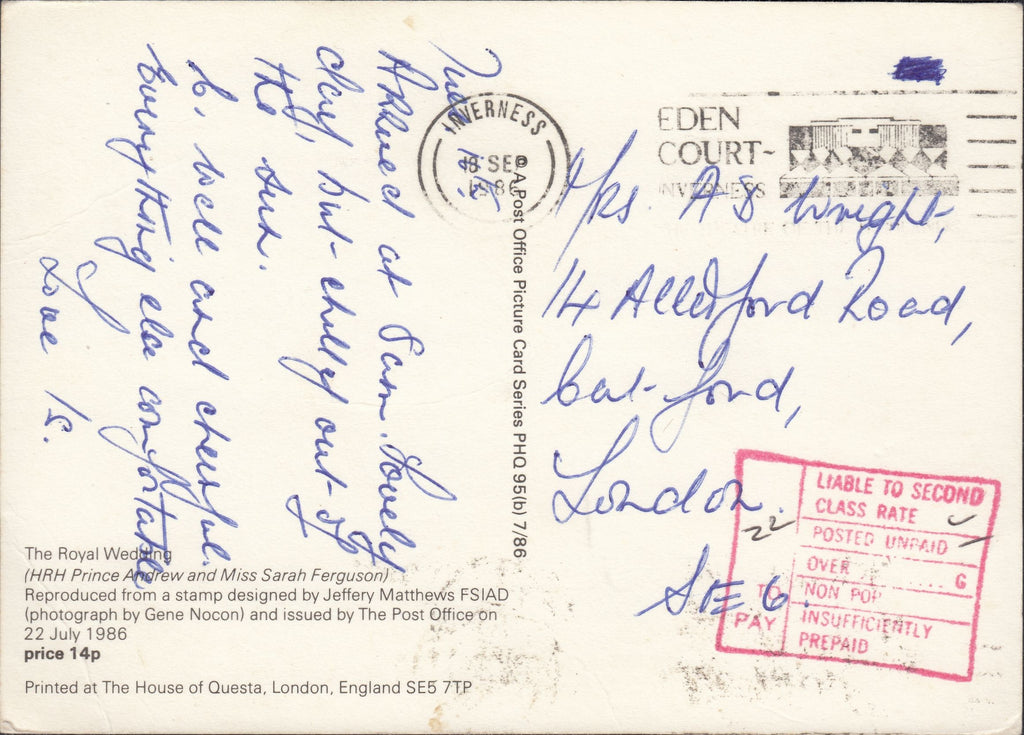 Tues 16.
Arrived at 8am. Lovely
day, but chilly out of
the sun.
B. well and cheerful.
Everything else comfortable
Love
INVERNESS
SEP
1986
EDEN
COURT~
INVERNESS
Mrs A S Wright,
14 Allerford Road,
Catford,
London.
SE 6.
© A Post Office Picture Card Series PHQ 95(b) 7/86
LIABLE TO SECOND
CLASS RATE
POSTED UNPAID
OVER ........ G
NON POP
INSUFFICIENTLY
PREPAID
22
TO
PAY
The Royal Wedding
(HRH Prince Andrew and Miss Sarah Ferguson)
Reproduced from a stamp designed by Jeffery Matthews FSIAD
(photograph by Gene Nocon) and issued by The Post Office on
22 July 1986
price 14p
Printed at The House of Questa, London, England SE5 7TP